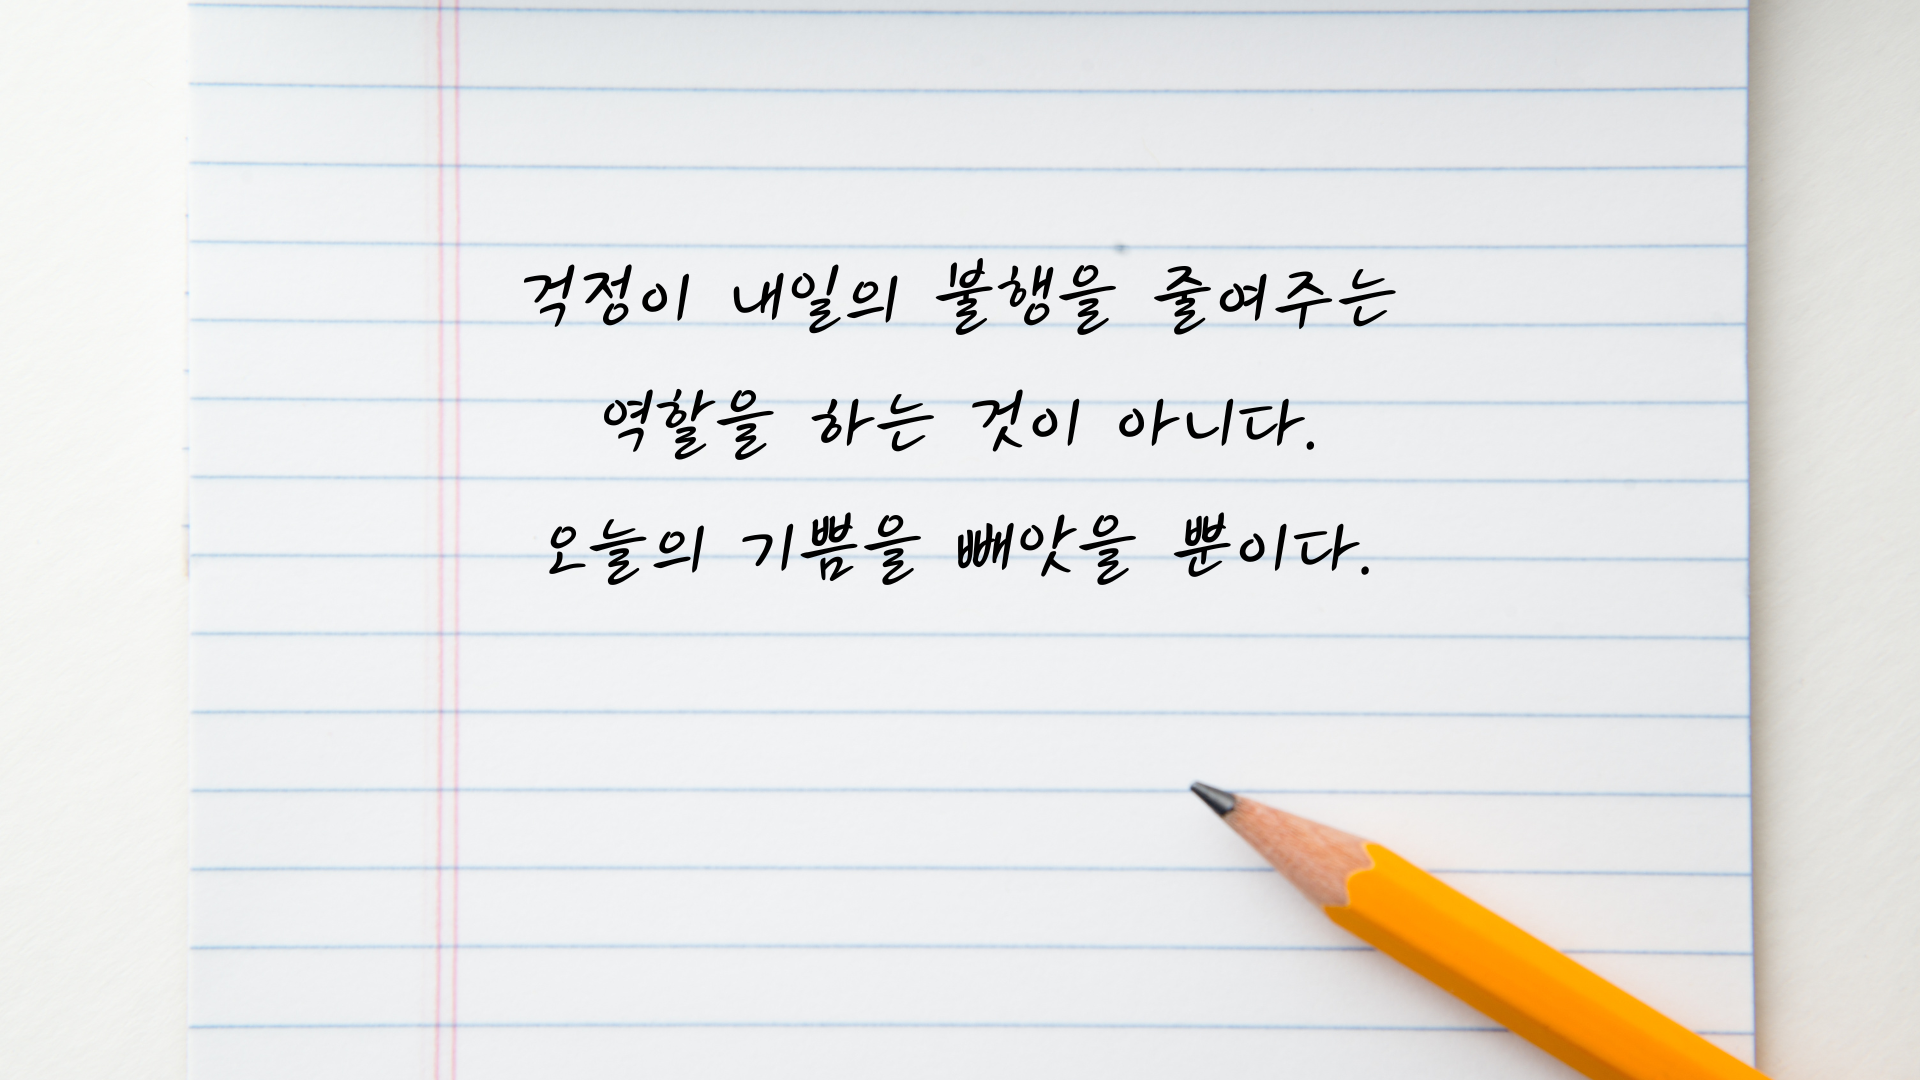 걱정이 내일의 불행을 줄여주는
역할을 하는 것이 아니다.
오늘의 기쁨을 빼앗을 뿐이다.